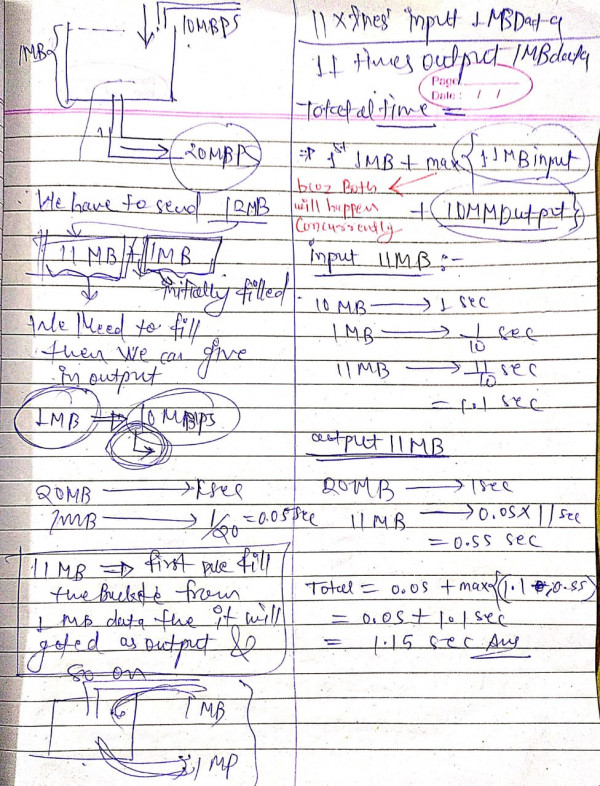 10MBPS
1MB
20MBPS
We have to send 12MB
11 MB + 1MB
initially filled
We Need to fill
then We can give
in output
1MB ⇒ 10 MBPS
20MB → 1 sec
1MB → 1/20 = 0.05 sec
11 MB ⇒ first we fill
the bucket from
1 MB data the it will
goted as output &
so on
1 MB
1 MB
11 times input 1MB Data
11 times output 1MB data
Page:
Date: / /
Total time =
⇒ 1st 1MB + max { 11MB input
+ 10MM Output }
bcoz Both
will happen
Concurrently
input 11MB :-
10 MB → 1 sec
1 MB → 1/10 sec
11 MB → 11/10 sec
= 1.1 sec
output 11MB
20MB → 1 sec
11 MB → 0.05 x 11 sec
= 0.55 sec
Total = 0.05 + max {(1.1, 0.55)
= 0.05 + 1.1 sec
= 1.15 sec Ans